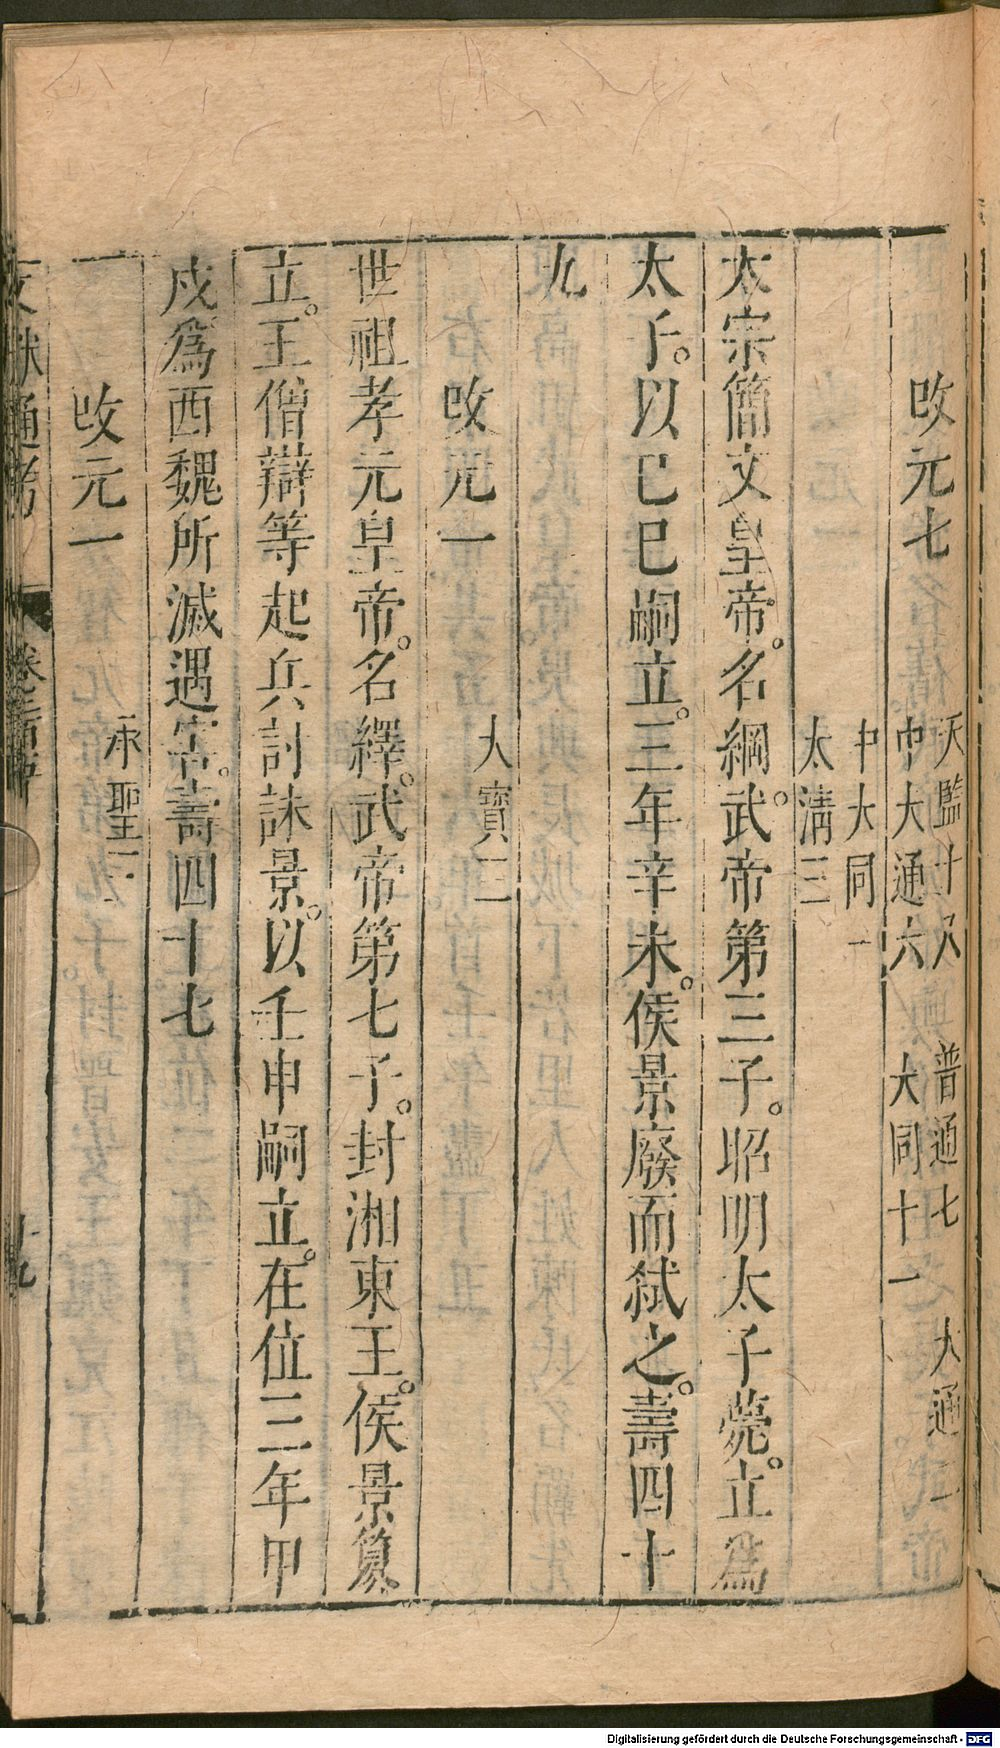 改元七
天監十八　普通七　大通二
中大通六　大同十一
中大同一
太淸三
太宗簡文皇帝。名綱。武帝第三子。昭明太子薨。立爲
太子。以己巳嗣立。三年辛未。侯景廢而弑之。壽四十
九
改元一
大寶二
世祖孝元皇帝。名繹。武帝第七子。封湘東王。侯景簒
立。王僧辯等起兵討誅景。以壬申嗣立。在位三年甲
戌爲西魏所滅遇害。壽四十七
改元一
承聖三
文獻通考
十九
Digitalisierung gefördert durch die Deutsche Forschungsgemeinschaft - DFG